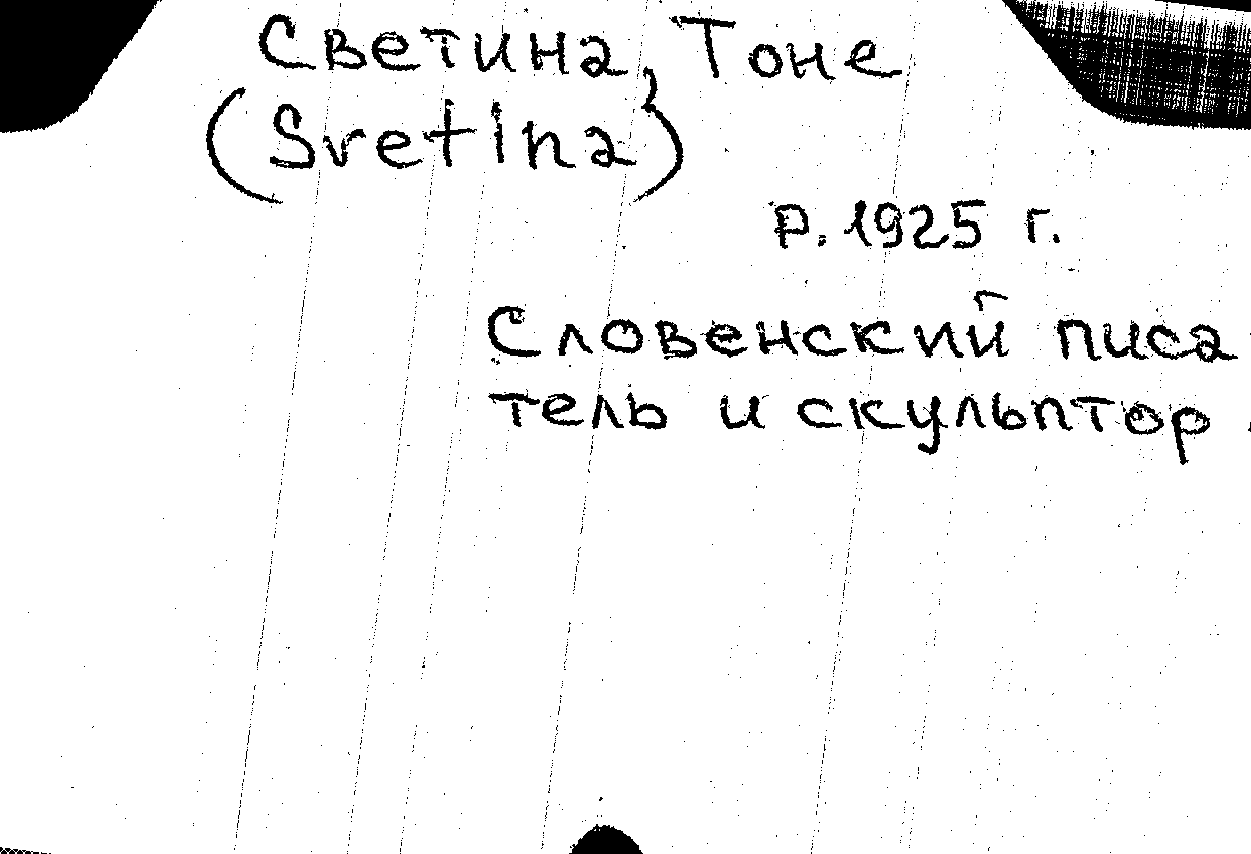 Светина, Тоне
(Svetina)
р. 1925 г.
Словенский писа
тель и скульптор.